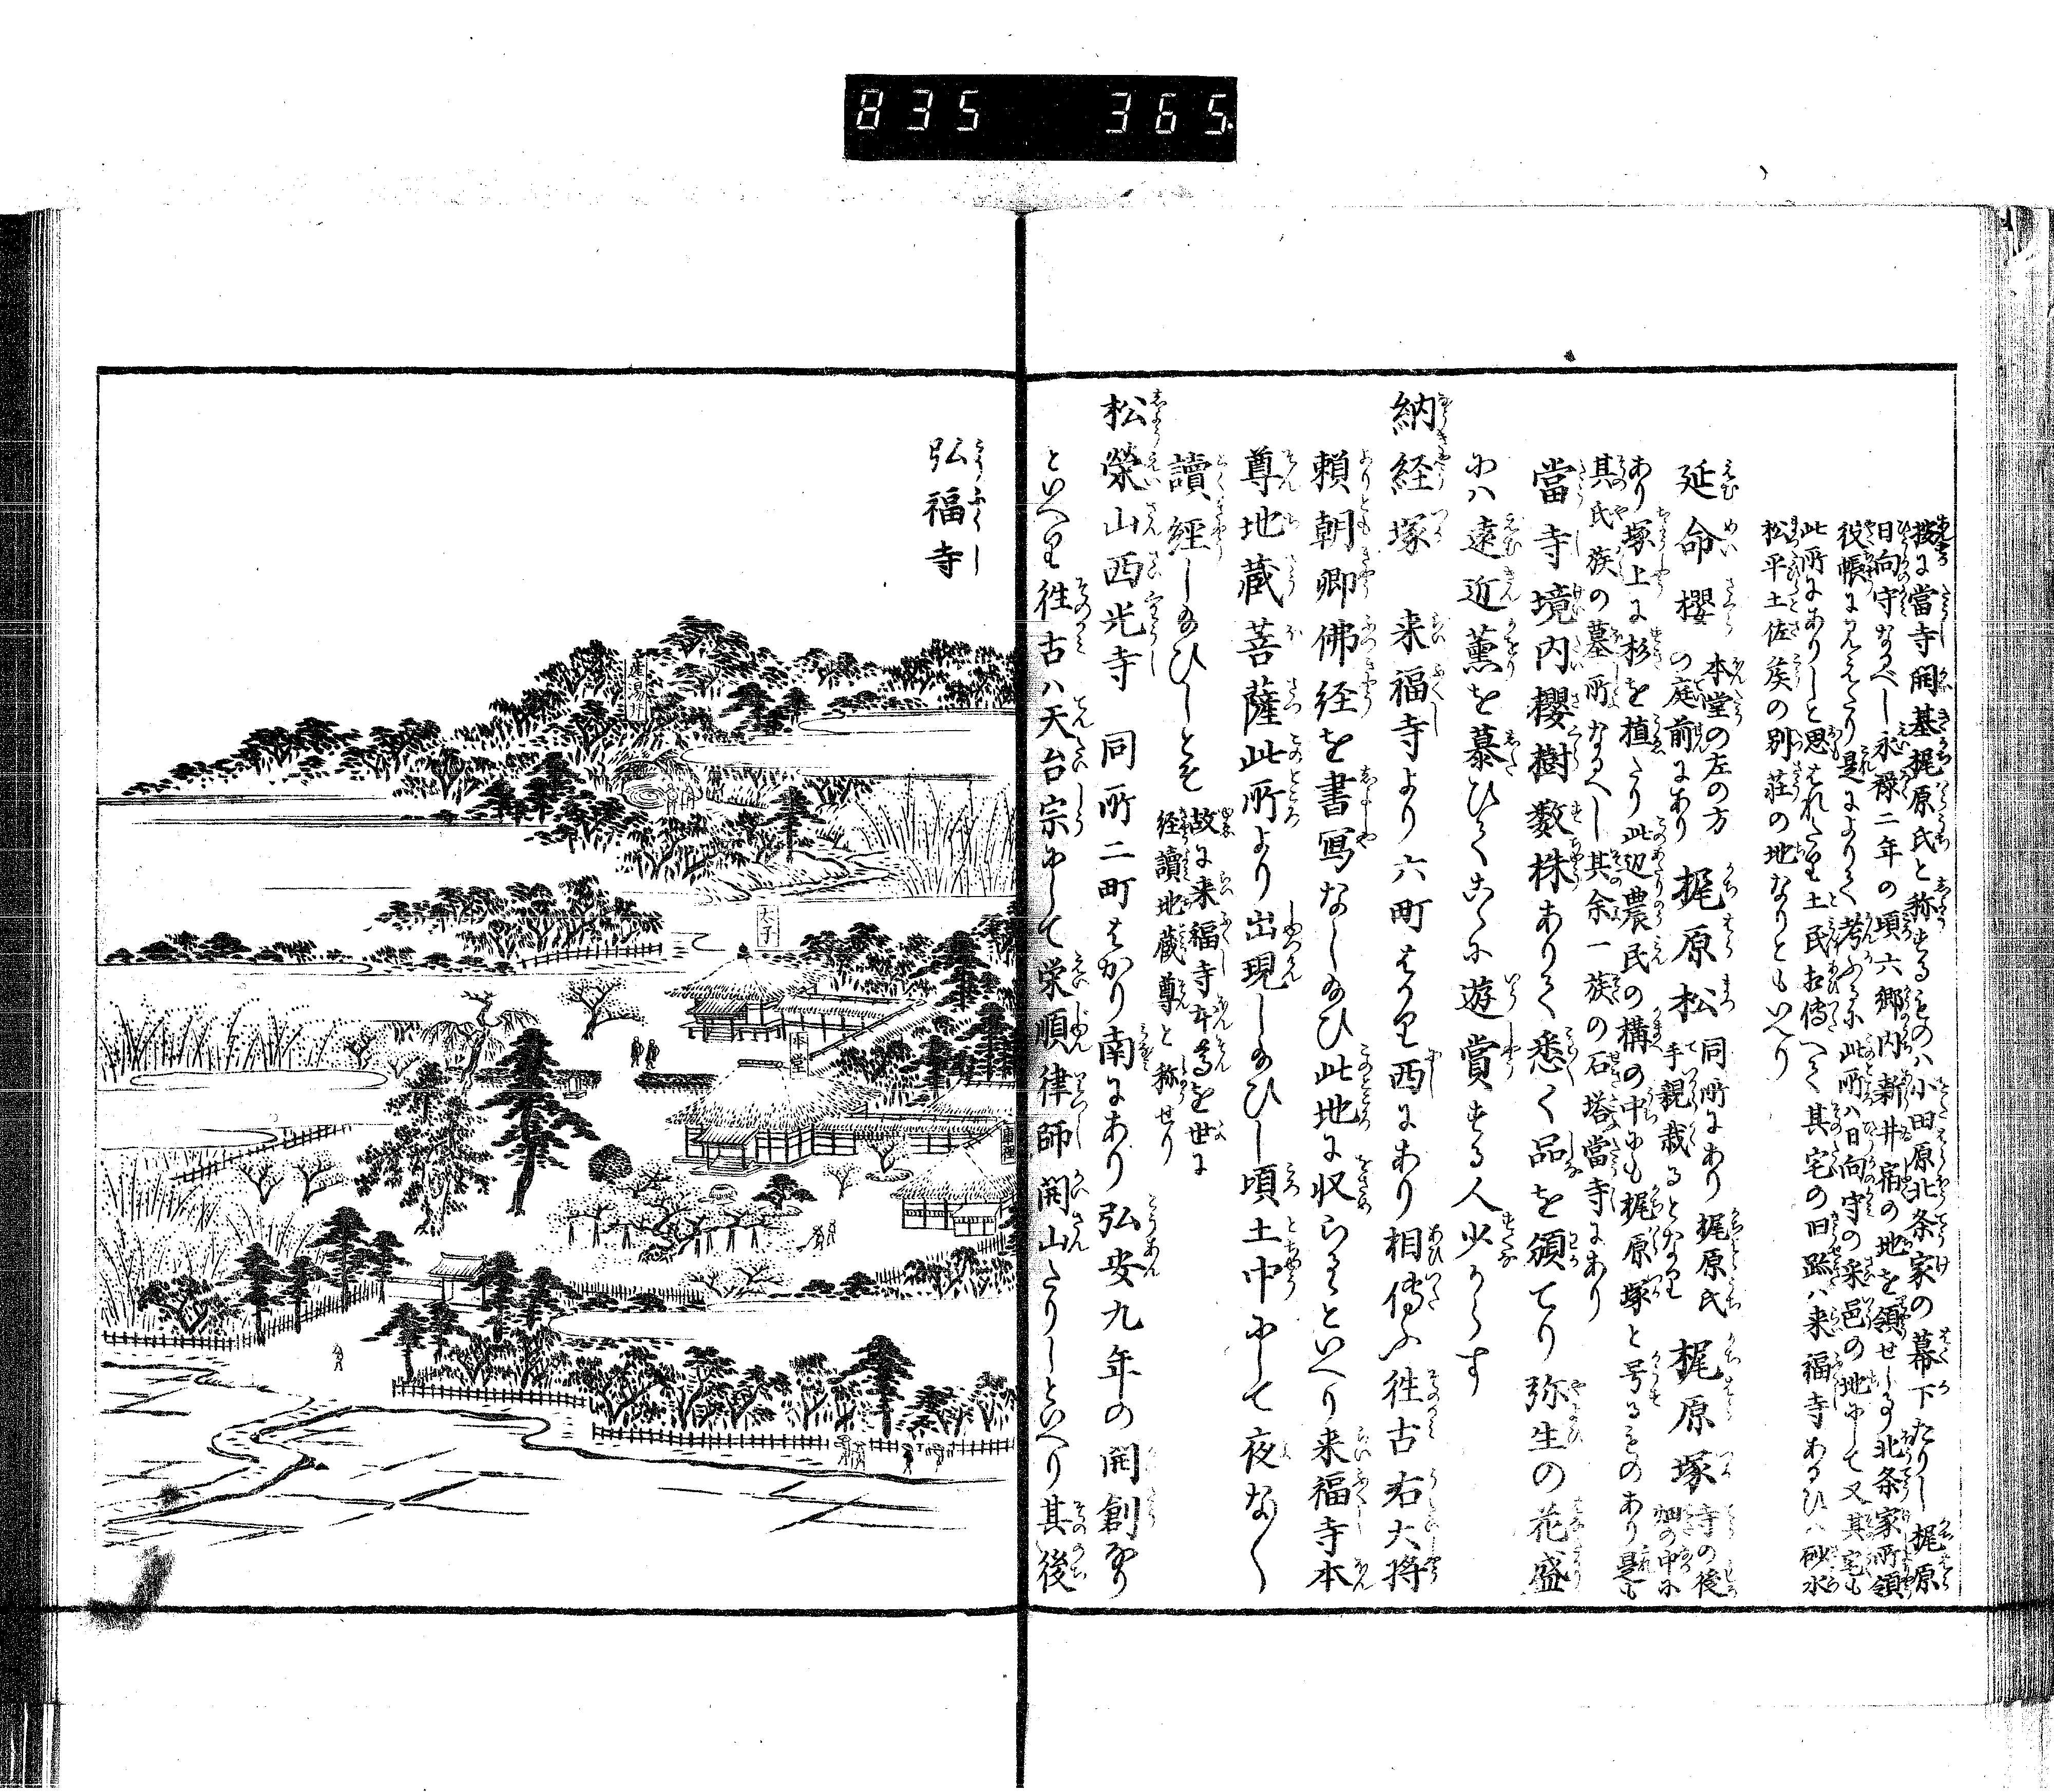 835 365
按に當寺開基梶原氏と称するものハ小田原北条家の幕下たりし梶原
日向守なるべし永禄二年の頃六郷内新井宿の地を領せし事北条家所領
役帳にみえたり是によりて考ふるに此所ハ日向守の采邑の地にして又其宅も
此所にありしと思はれたり土民相傳へて其宅の旧跡ハ来福寺あるひハ砂水
松平土佐矦の別荘の地なりともいへり
延命櫻 本堂の左の方の庭前にあり 梶原松 同所にあり梶原氏手親栽ると 梶原塚 寺の後畑の中に
あり塚上に杉を植たり此辺農民の構の中にも梶原塚と号るものあり是も
其氏族の墓所なるへし其余一族の石塔當寺にあり
當寺境内櫻樹数株ありて悉く品を頒てり弥生の花盛
にハ遠近薫を慕ひてこゝに遊賞する人少からす
納経塚 来福寺より六町はかり西にあり相傳ふ徃古右大将
頼朝卿佛経を書寫なし給ひ此地に収らるといへり来福寺本
尊地蔵菩薩此所より出現し給ひし頃土中にして夜な〳〵
讀經し給ひしとそ 故に来福寺本尊を世に経讀地蔵尊と称せり
松榮山西光寺 同所二町はかり南にあり弘安九年の開創なり
といへり徃古ハ天台宗にして栄順律師開山たりしといへり其後
弘福寺
産湯井
太子
本堂
庫裡